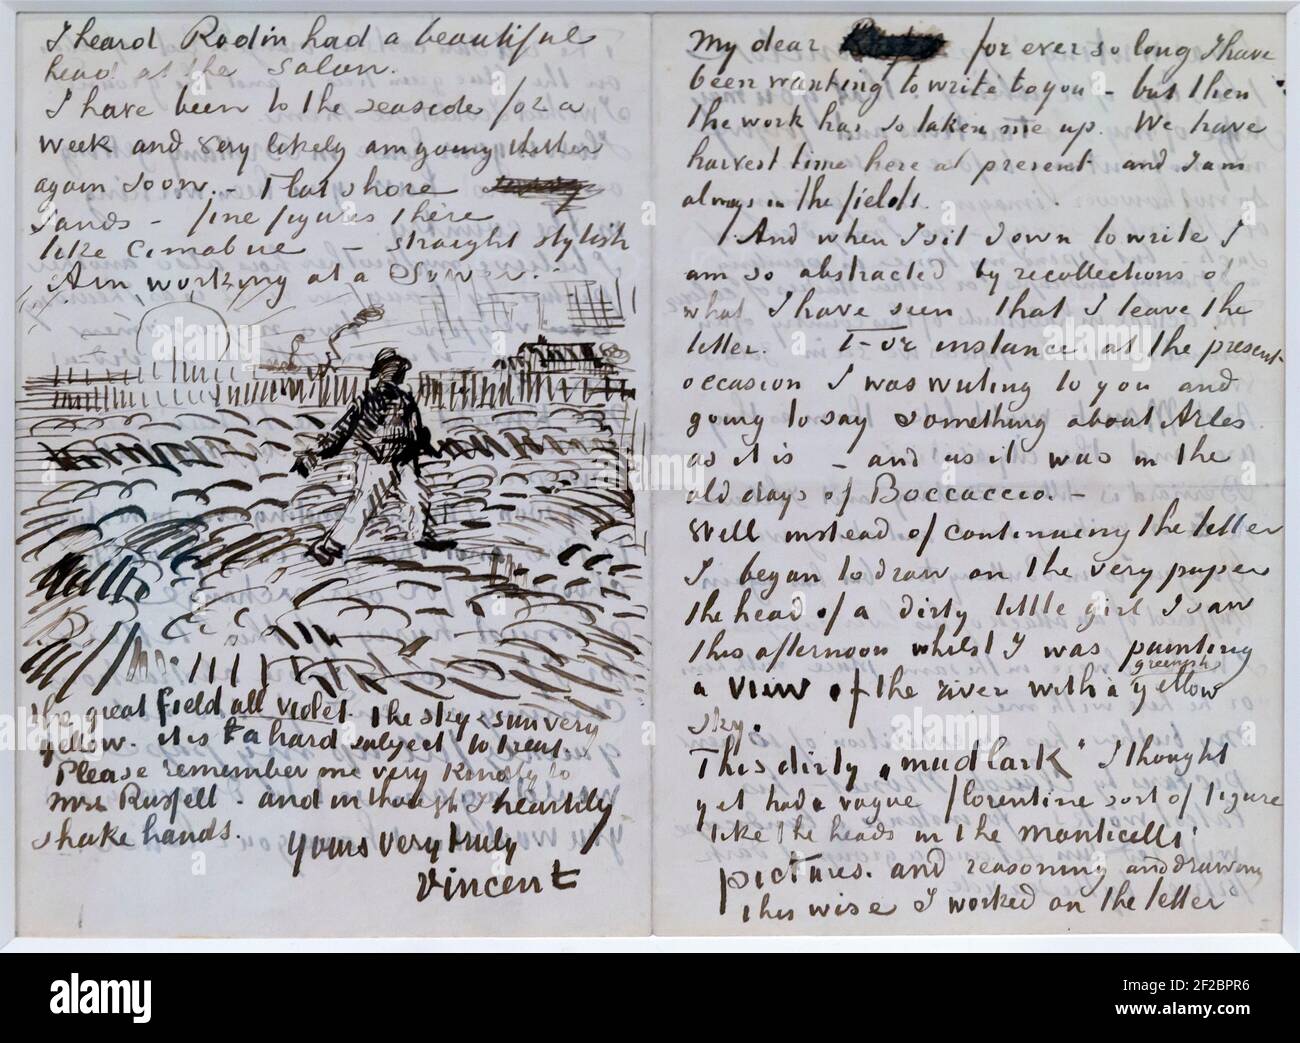 I heard Rodin had a beautiful
head at the Salon.
I have been to the seaside for a
week and very likely am going thither
again soon. - Flat shore
sands - fine figures there
like Cimabue - straight stylish
Am working at a Sower.
the great field all violet the sky & sun very
yellow. it is a hard subject to treat.
Please remember me very kindly to
mrs Russell - and in thought I heartily
shake hands.
yours very truly
Vincent
My dear for ever so long I have
been wanting to write to you - but then
the work has so taken me up. We have
harvest time here at present and I am
always in the fields.
And when I sit down to write I
am so abstracted by recollections of
what I have seen that I leave the
letter. For instance at the present
occasion I was writing to you and
going to say something about Arles
as it is - and as it was in the
old days of Boccaccio. -
Well instead of continuing the letter
I began to draw on the very paper
the head of a dirty little girl I saw
this afternoon whilst I was painting
a view of the river with a greenish yellow
sky.
This dirty „mudlark" I thought
yet had a vague florentine sort of figure
like the heads in the monticelli
pictures. and reasoning and drawing
this wise I worked on the letter
alamy
Image ID: 2F2BPR6
www.alamy.com